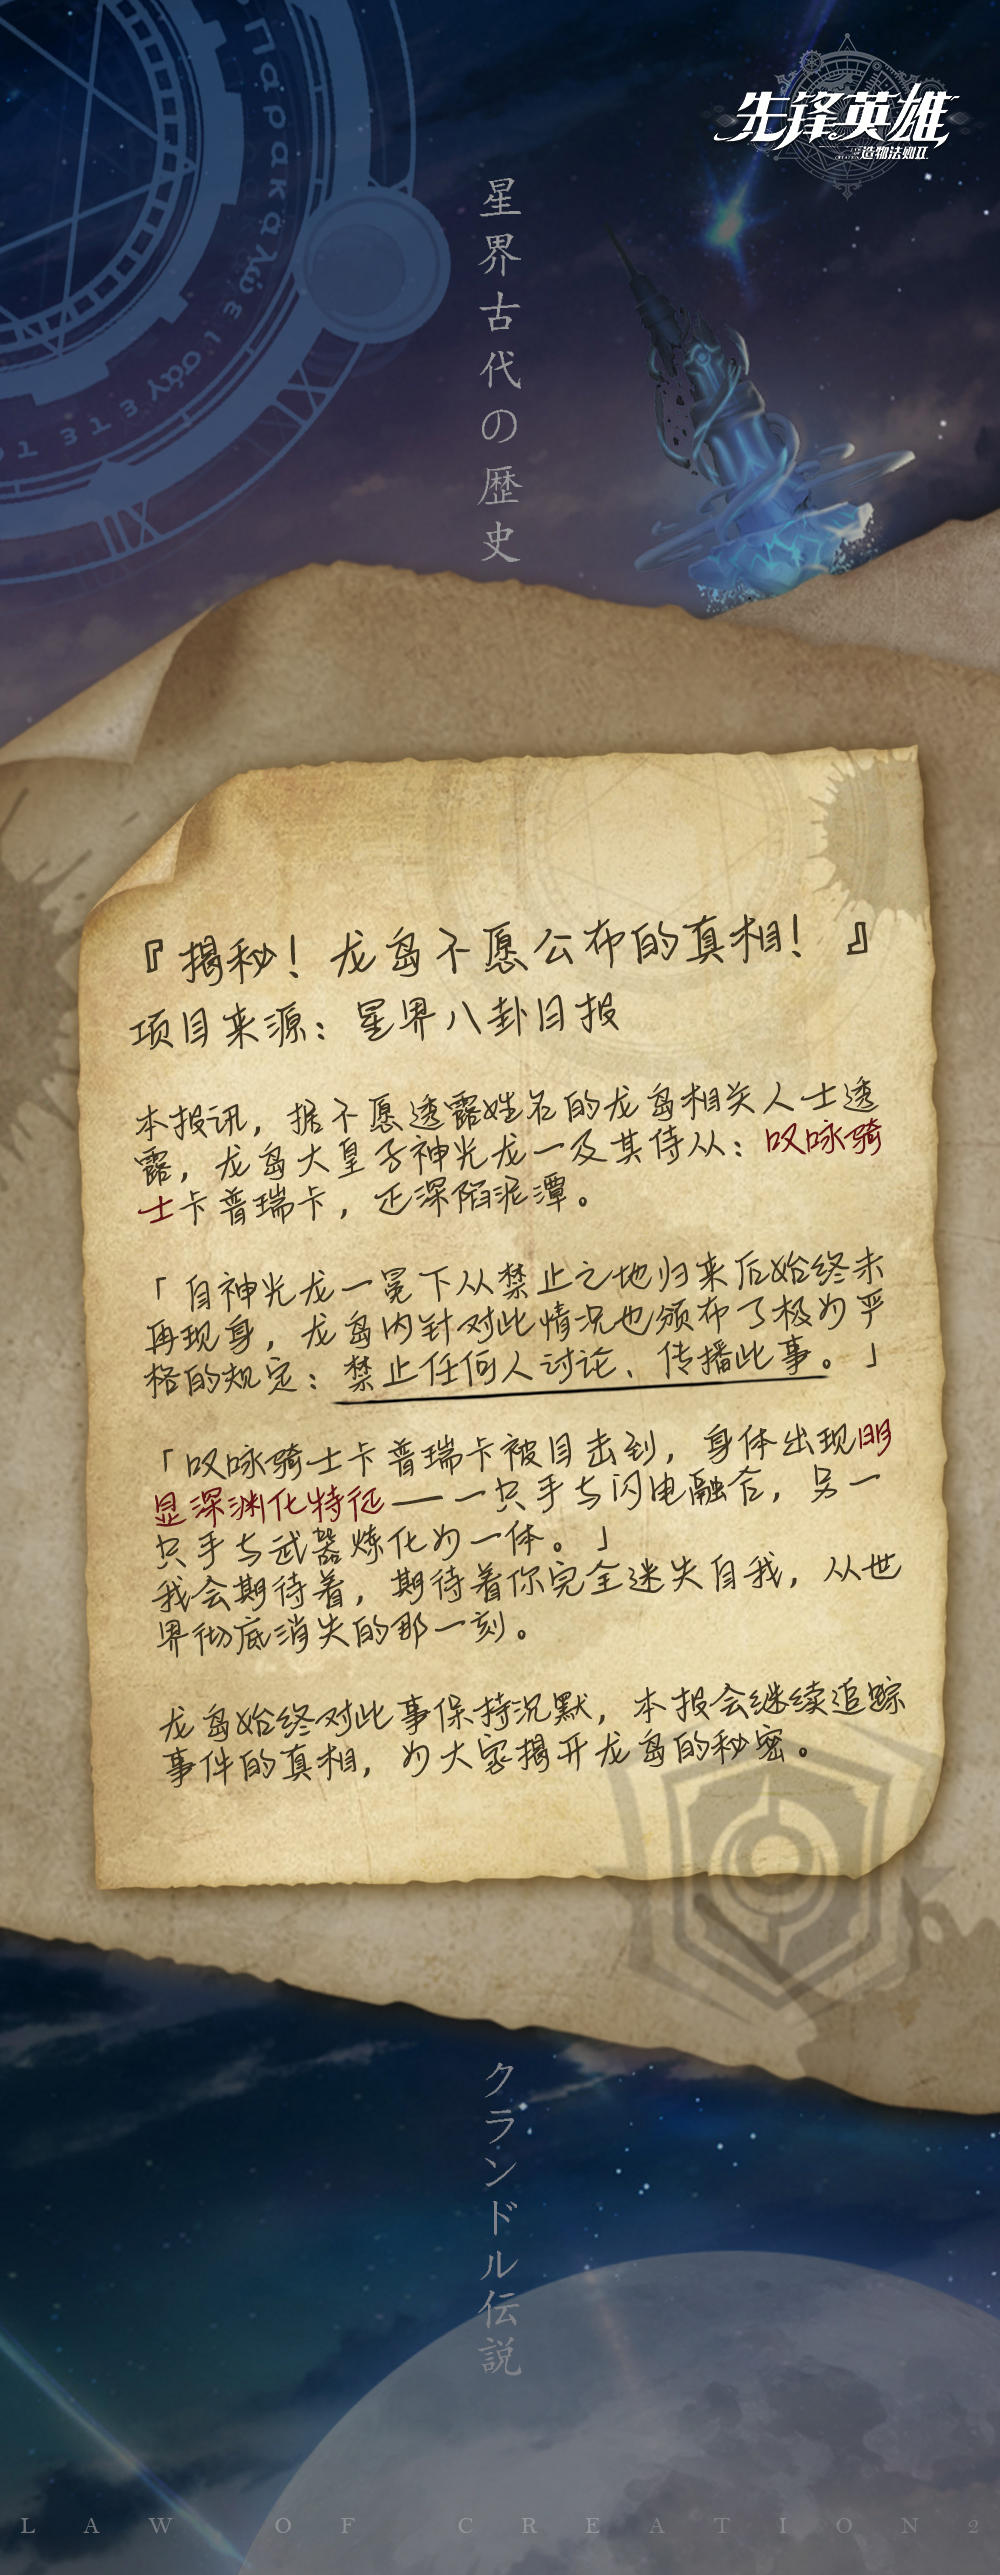 先锋英雄
造物法则II
星界古代の歴史
『揭秘！龙岛不愿公布的真相！』
项目来源：星界八卦日报
本报讯，据不愿透露姓名的龙岛相关人士透
露，龙岛大皇子神光龙一及其侍从：叹咏骑
士卡普瑞卡，正深陷泥潭。
「自神光龙一冕下从禁止之地归来后始终未
再现身，龙岛内针对此情况也颁布了极为严
格的规定：禁止任何人讨论、传播此事。」
「叹咏骑士卡普瑞卡被目击到，身体出现明
显深渊化特征——一只手与闪电融合，另一
只手与武器炼化为一体。」
我会期待着，期待着你完全迷失自我，从世
界彻底消失的那一刻。
龙岛始终对此事保持沉默，本报会继续追踪
事件的真相，为大家揭开龙岛的秘密。
クランドル伝説
LAW OF CREATION 2